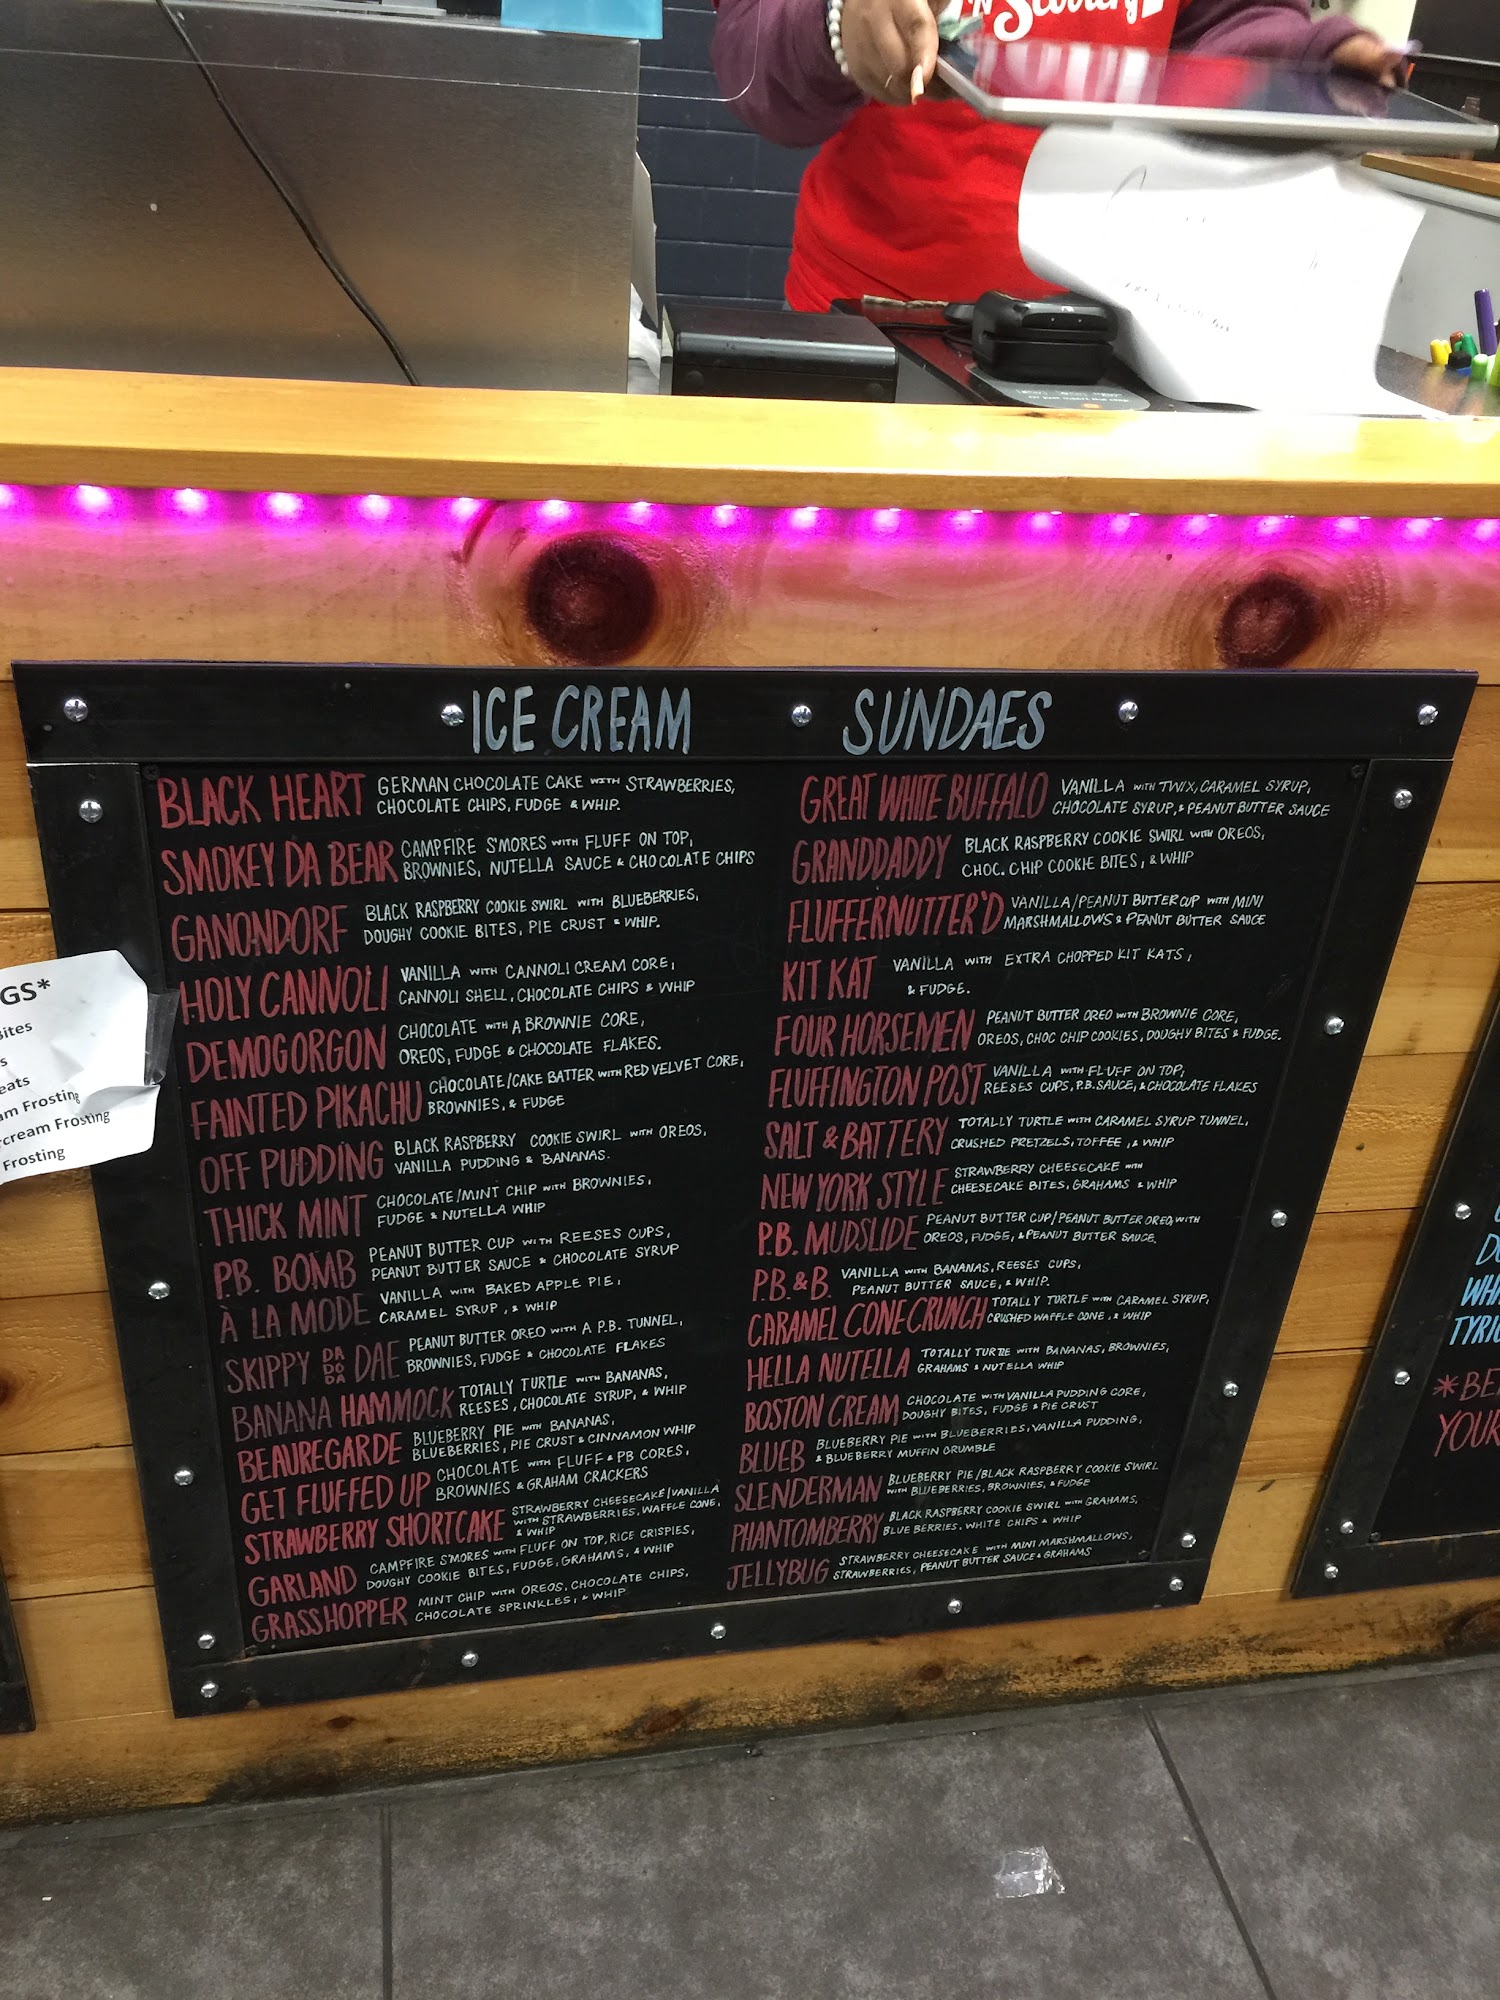 'N SCOOTERY
ICE CREAM SUNDAES
BLACK HEART GERMAN CHOCOLATE CAKE WITH STRAWBERRIES,
CHOCOLATE CHIPS, FUDGE & WHIP.
SMOKEY DA BEAR CAMPFIRE S'MORES WITH FLUFF ON TOP,
BROWNIES, NUTELLA SAUCE & CHOCOLATE CHIPS
GANONDORF BLACK RASPBERRY COOKIE SWIRL WITH BLUEBERRIES,
DOUGHY COOKIE BITES, PIE CRUST & WHIP.
HOLY CANNOLI VANILLA WITH CANNOLI CREAM CORE,
CANNOLI SHELL, CHOCOLATE CHIPS & WHIP
DEMOGORGON CHOCOLATE WITH A BROWNIE CORE,
OREOS, FUDGE & CHOCOLATE FLAKES.
FAINTED PIKACHU CHOCOLATE/CAKE BATTER WITH RED VELVET CORE,
BROWNIES, & FUDGE
OFF PUDDING BLACK RASPBERRY COOKIE SWIRL WITH OREOS,
VANILLA PUDDING & BANANAS.
THICK MINT CHOCOLATE/MINT CHIP WITH BROWNIES,
FUDGE & NUTELLA WHIP
P.B. BOMB PEANUT BUTTER CUP WITH REESES CUPS,
PEANUT BUTTER SAUCE & CHOCOLATE SYRUP
À LA MODE VANILLA WITH BAKED APPLE PIE,
CARAMEL SYRUP, & WHIP
SKIPPY DA DO DA DAE PEANUT BUTTER OREO WITH A P.B. TUNNEL,
BROWNIES, FUDGE & CHOCOLATE FLAKES
BANANA HAMMOCK TOTALLY TURTLE WITH BANANAS,
REESES, CHOCOLATE SYRUP, & WHIP
BEAUREGARDE BLUEBERRY PIE WITH BANANAS,
BLUEBERRIES, PIE CRUST & CINNAMON WHIP
GET FLUFFED UP CHOCOLATE WITH FLUFF & PB CORES,
BROWNIES & GRAHAM CRACKERS
STRAWBERRY SHORTCAKE STRAWBERRY CHEESECAKE/VANILLA
WITH STRAWBERRIES, WAFFLE CONE,
& WHIP
GARLAND CAMPFIRE S'MORES WITH FLUFF ON TOP, RICE CRISPIES,
DOUGHY COOKIE BITES, FUDGE, GRAHAMS, & WHIP
GRASSHOPPER MINT CHIP WITH OREOS, CHOCOLATE CHIPS,
CHOCOLATE SPRINKLES, & WHIP
GREAT WHITE BUFFALO VANILLA WITH TWIX, CARAMEL SYRUP,
CHOCOLATE SYRUP, & PEANUT BUTTER SAUCE
GRANDDADDY BLACK RASPBERRY COOKIE SWIRL WITH OREOS,
CHOC. CHIP COOKIE BITES, & WHIP
FLUFFERNUTTER'D VANILLA/PEANUT BUTTER CUP WITH MINI
MARSHMALLOWS & PEANUT BUTTER SAUCE
KIT KAT VANILLA WITH EXTRA CHOPPED KIT KATS,
& FUDGE.
FOUR HORSEMEN PEANUT BUTTER OREO WITH BROWNIE CORE,
OREOS, CHOC CHIP COOKIES, DOUGHY BITES & FUDGE.
FLUFFINGTON POST VANILLA WITH FLUFF ON TOP,
REESES CUPS, P.B. SAUCE, & CHOCOLATE FLAKES
SALT & BATTERY TOTALLY TURTLE WITH CARAMEL SYRUP TUNNEL,
CRUSHED PRETZELS, TOFFEE, & WHIP
NEW YORK STYLE STRAWBERRY CHEESECAKE WITH
CHEESECAKE BITES, GRAHAMS & WHIP
P.B. MUDSLIDE PEANUT BUTTER CUP/PEANUT BUTTER OREO, WITH
OREOS, FUDGE, & PEANUT BUTTER SAUCE.
P.B.&B. VANILLA WITH BANANAS, REESES CUPS,
PEANUT BUTTER SAUCE, & WHIP.
CARAMEL CONE CRUNCH TOTALLY TURTLE WITH CARAMEL SYRUP,
CRUSHED WAFFLE CONE, & WHIP
HELLA NUTELLA TOTALLY TURTLE WITH BANANAS, BROWNIES,
GRAHAMS & NUTELLA WHIP
BOSTON CREAM CHOCOLATE WITH VANILLA PUDDING CORE,
DOUGHY BITES, FUDGE & PIE CRUST
BLUEB BLUEBERRY PIE WITH BLUEBERRIES, VANILLA PUDDING,
& BLUEBERRY MUFFIN CRUMBLE
SLENDERMAN BLUEBERRY PIE/BLACK RASPBERRY COOKIE SWIRL
WITH BLUEBERRIES, BROWNIES, & FUDGE
PHANTOMBERRY BLACK RASPBERRY COOKIE SWIRL WITH GRAHAMS,
BLUE BERRIES, WHITE CHIPS & WHIP
JELLYBUG STRAWBERRY CHEESECAKE WITH MINI MARSHMALLOWS,
STRAWBERRIES, PEANUT BUTTER SAUCE & GRAHAMS
GS*
Bites
s
eats
am Frosting
rcream Frosting
Frosting
WH
TYRI
*BE
YOUR